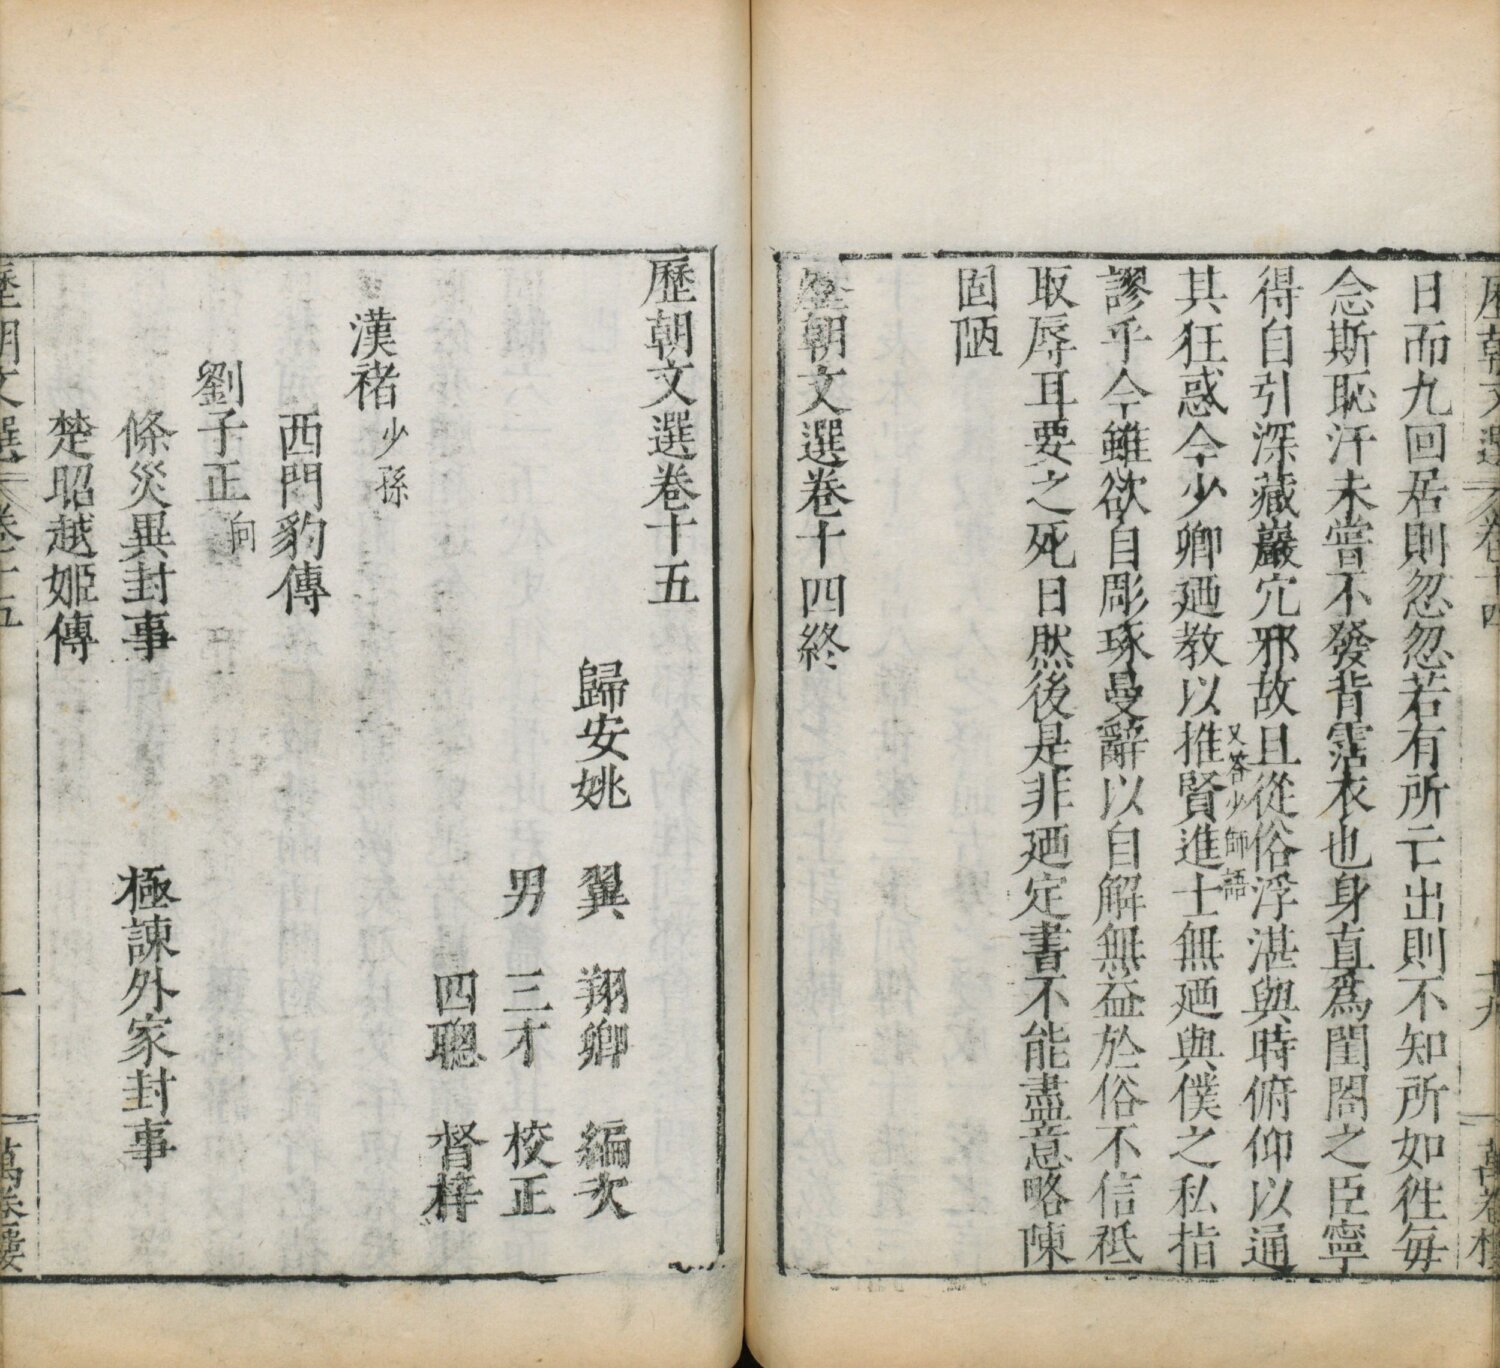 歷朝文選 卷十四 十九 萬卷樓
日而九回居則忽忽若有所亡出則不知所如徃每
念斯恥汗未嘗不發背霑衣也身直爲閨閤之臣寧
得自引深藏巖穴邪故且從俗浮湛與時俯仰以通
又答少師語
其狂惑今少卿廼教以推賢進士無廼與僕之私指
謬乎今雖欲自彫琢曼辭以自解無益於俗不信祗
取辱耳要之死日然後是非廼定書不能盡意略陳
固陋
歷朝文選卷十四終
歷朝文選卷十五
歸安姚 翼 翔卿 編次
男 三才 校正
四聰 督梓
漢褚少孫
西門豹傳
劉子正向
條災異封事 極諫外家封事
楚昭越姬傳
歷朝文選 卷十五 一 萬卷樓